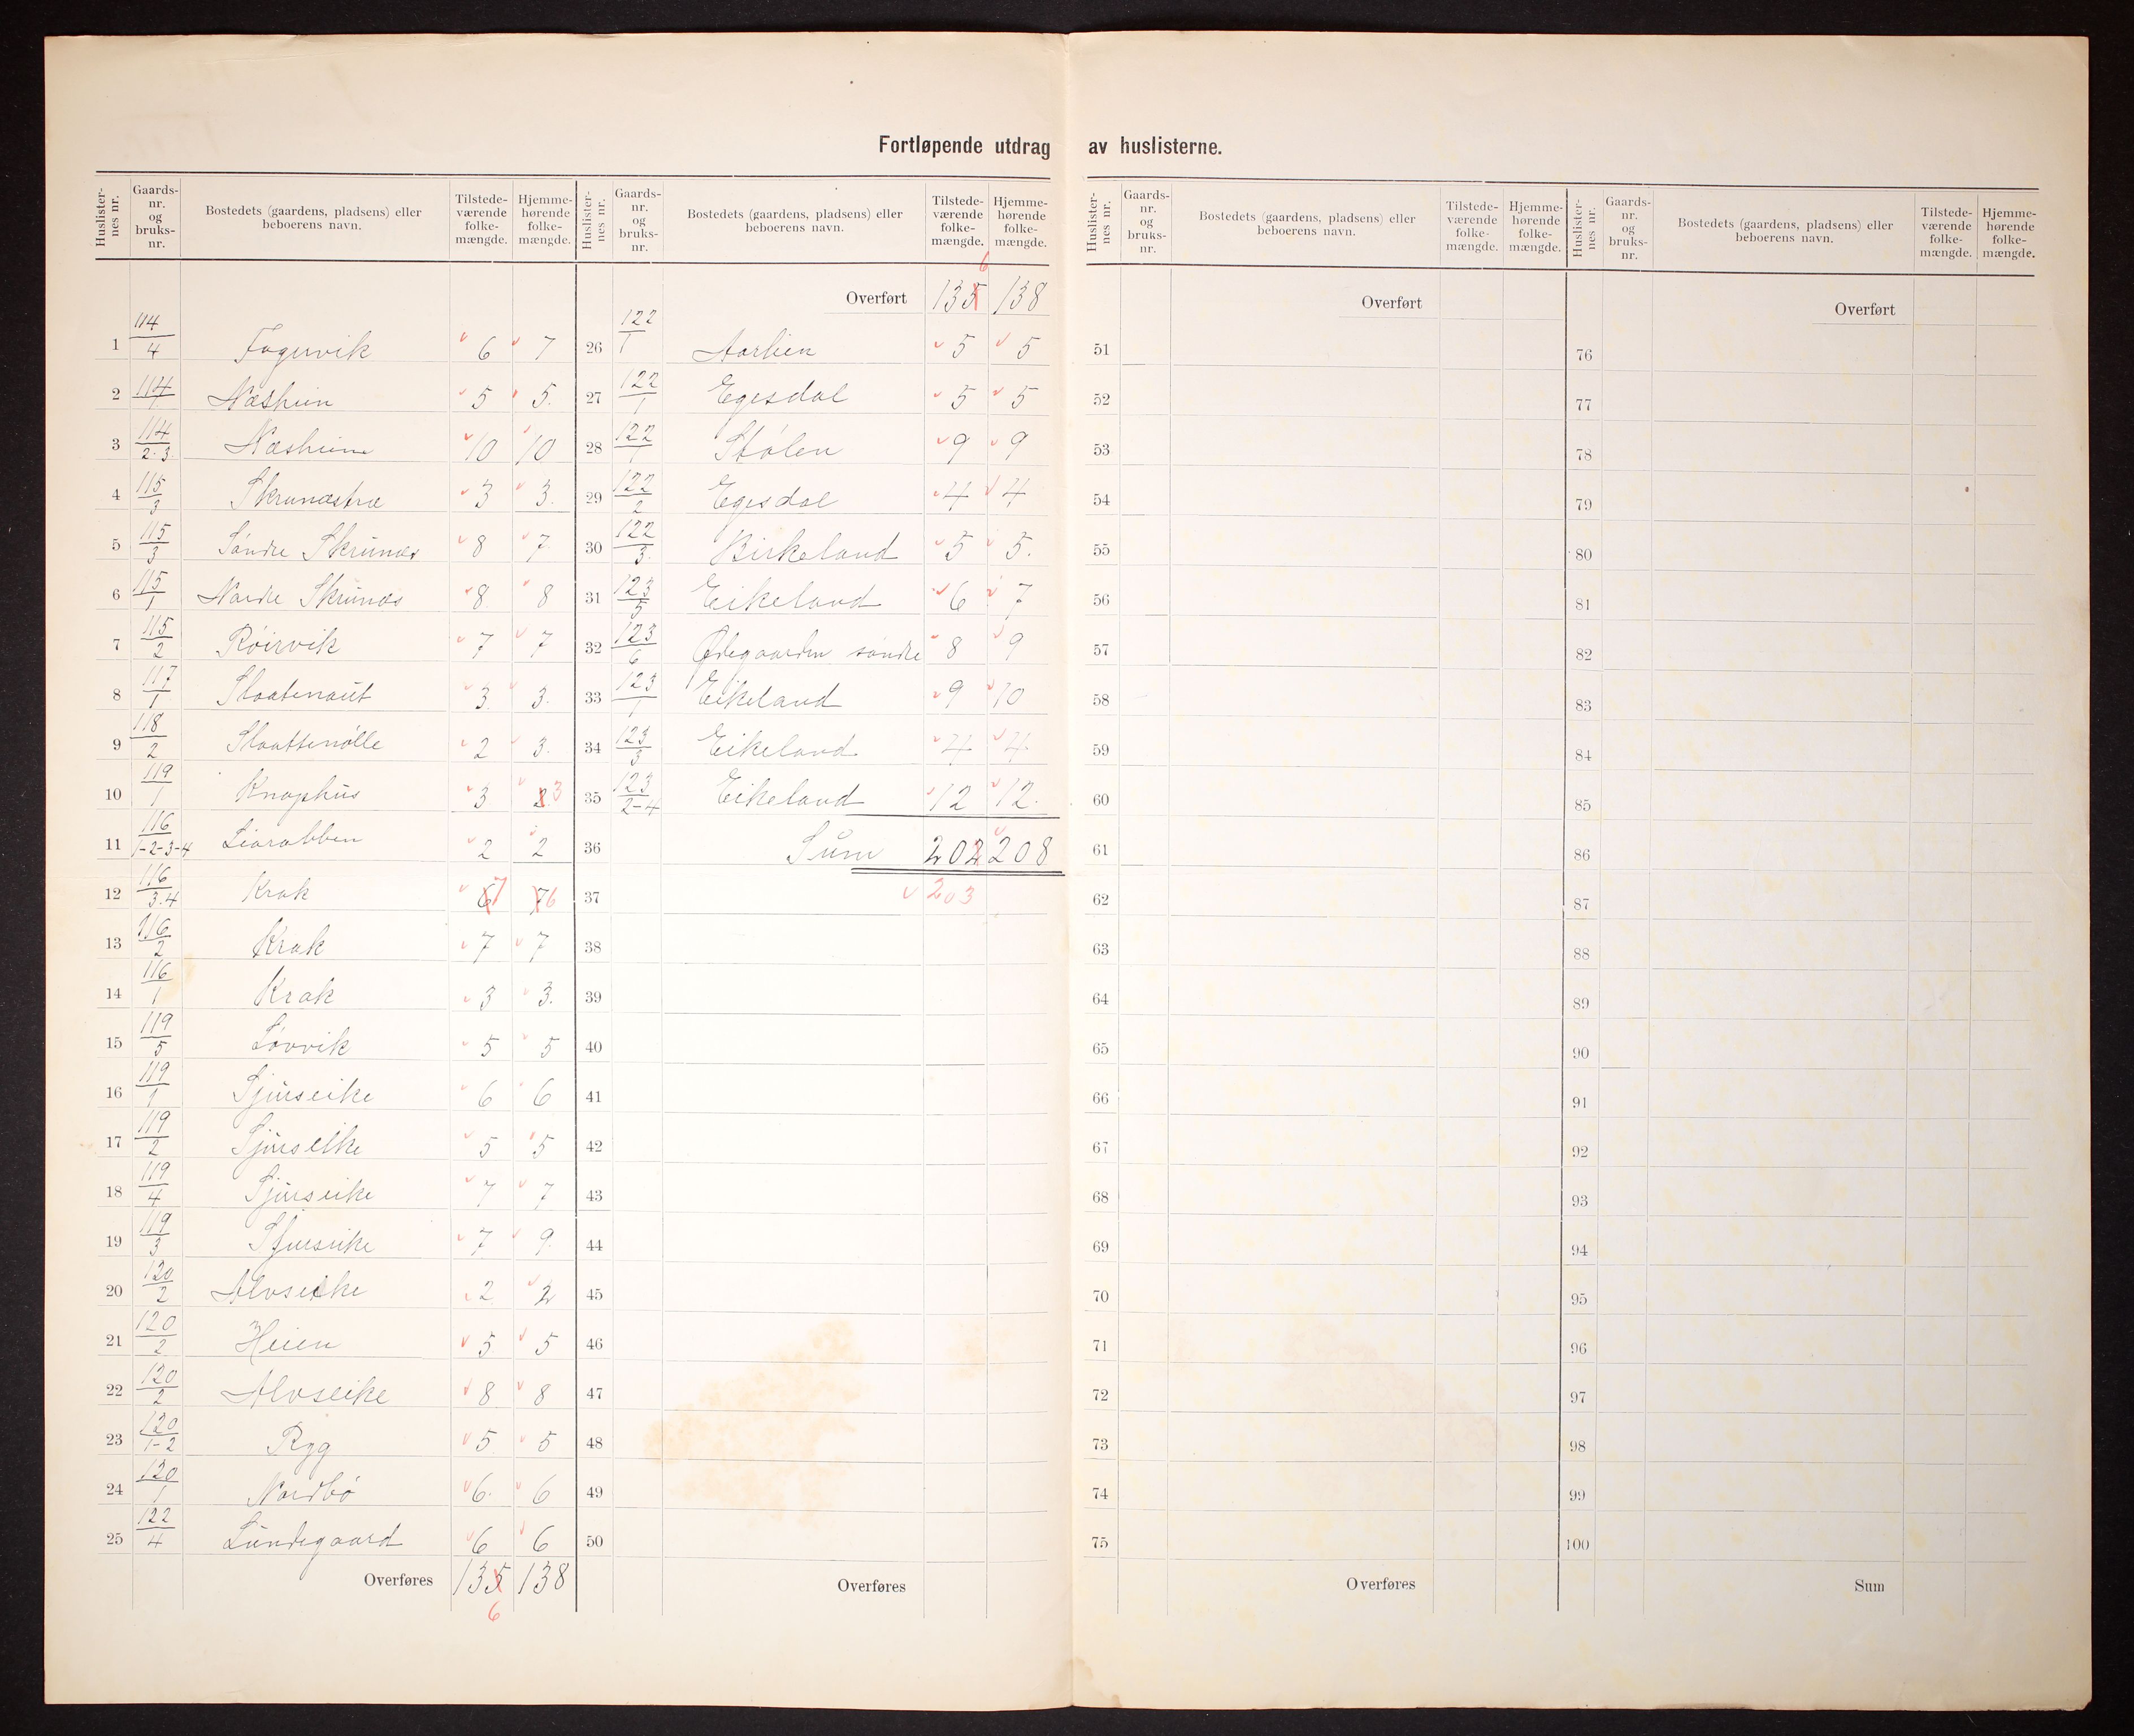 Fortløpende utdrag av huslisterne.
Huslisternes nr. | Gaards-nr. og bruks-nr. | Bostedets (gaardens, pladsens) eller beboerens navn. | Tilstede-værende folke-mængde. | Hjemme-hørende folke-mængde.
1 | 114/4 | Fagervik | 6 | 7
2 | 114/1 | Næsheim | 5 | 5.
3 | 114/2.3. | Næsheim | 10 | 10
4 | 115/3 | Skrunæstræ | 3 | 3.
5 | 115/3 | Søndre Skrunæs | 8 | 7.
6 | 115/1 | Nordre Skrunæs | 8 | 8
7 | 115/2 | Røirvik | 7 | 7
8 | 117/1 | Slaatenaut | 3. | 3.
9 | 118/2 | | 2 | 3.
10 | 119/1 | Knaphus | 3. | 2 3
11 | 116/1-2-3-4 | Liarabben | 2 | 2
12 | 116/3.4 | Krak | 6 7 | 7 6
13 | 116/2 | Krak | 7 | 7
14 | 116/1 | Krak | 3 | 3.
15 | 119/5 | Løvvik | 5 | 5
16 | 119/1 | Sjurseike | 6 | 6
17 | 119/2 | Sjurseike | 5 | 5
18 | 119/4 | Sjurseike | 7 | 7
19 | 119/3 | Sjurseike | 7 | 9.
20 | 120/2 | Alvseike | 2 | 2
21 | 120/2 | Heien | 5 | 5
22 | 120/2 | Alvseike | 8 | 8
23 | 120/1-2 | Ryg | 5 | 5
24 | 120/1 | Nordbø | 6. | 6
25 | 122/4 | Lundegaard | 6 | 6
Overføres | 135 6 | 138
Huslisternes nr. | Gaards-nr. og bruks-nr. | Bostedets (gaardens, pladsens) eller beboerens navn. | Tilstede-værende folke-mængde. | Hjemme-hørende folke-mængde.
Overført | 135 6 | 138
26 | 122/1 | Aarlien | 5 | 5
27 | 122/1 | Egesdal | 5 | 5
28 | 122/1 | Stølen | 9 | 9
29 | 122/2 | Egesdal | 4 | 4
30 | 122/3. | Birkeland | 5 | 5.
31 | 123/5 | Eikeland | 6 | 7
32 | 123/6 | Ødegaarden søndre | 8 | 9
33 | 123/1 | Eikeland | 9 | 10
34 | 123/3 | Eikeland | 4 | 4.
35 | 123/2-4 | Eikeland | 12 | 12.
36 | Sum | 202 | 208
37 | 203
38
39
40
41
42
43
44
45
46
47
48
49
50
Overføres
Huslisternes nr. | Gaards-nr. og bruks-nr. | Bostedets (gaardens, pladsens) eller beboerens navn. | Tilstede-værende folke-mængde. | Hjemme-hørende folke-mængde.
Overført
51
52
53
54
55
56
57
58
59
60
61
62
63
64
65
66
67
68
69
70
71
72
73
74
75
Overføres
Huslisternes nr. | Gaards-nr. og bruks-nr. | Bostedets (gaardens, pladsens) eller beboerens navn. | Tilstede-værende folke-mængde. | Hjemme-hørende folke-mængde.
Overført
76
77
78
79
80
81
82
83
84
85
86
87
88
89
90
91
92
93
94
95
96
97
98
99
100
Sum